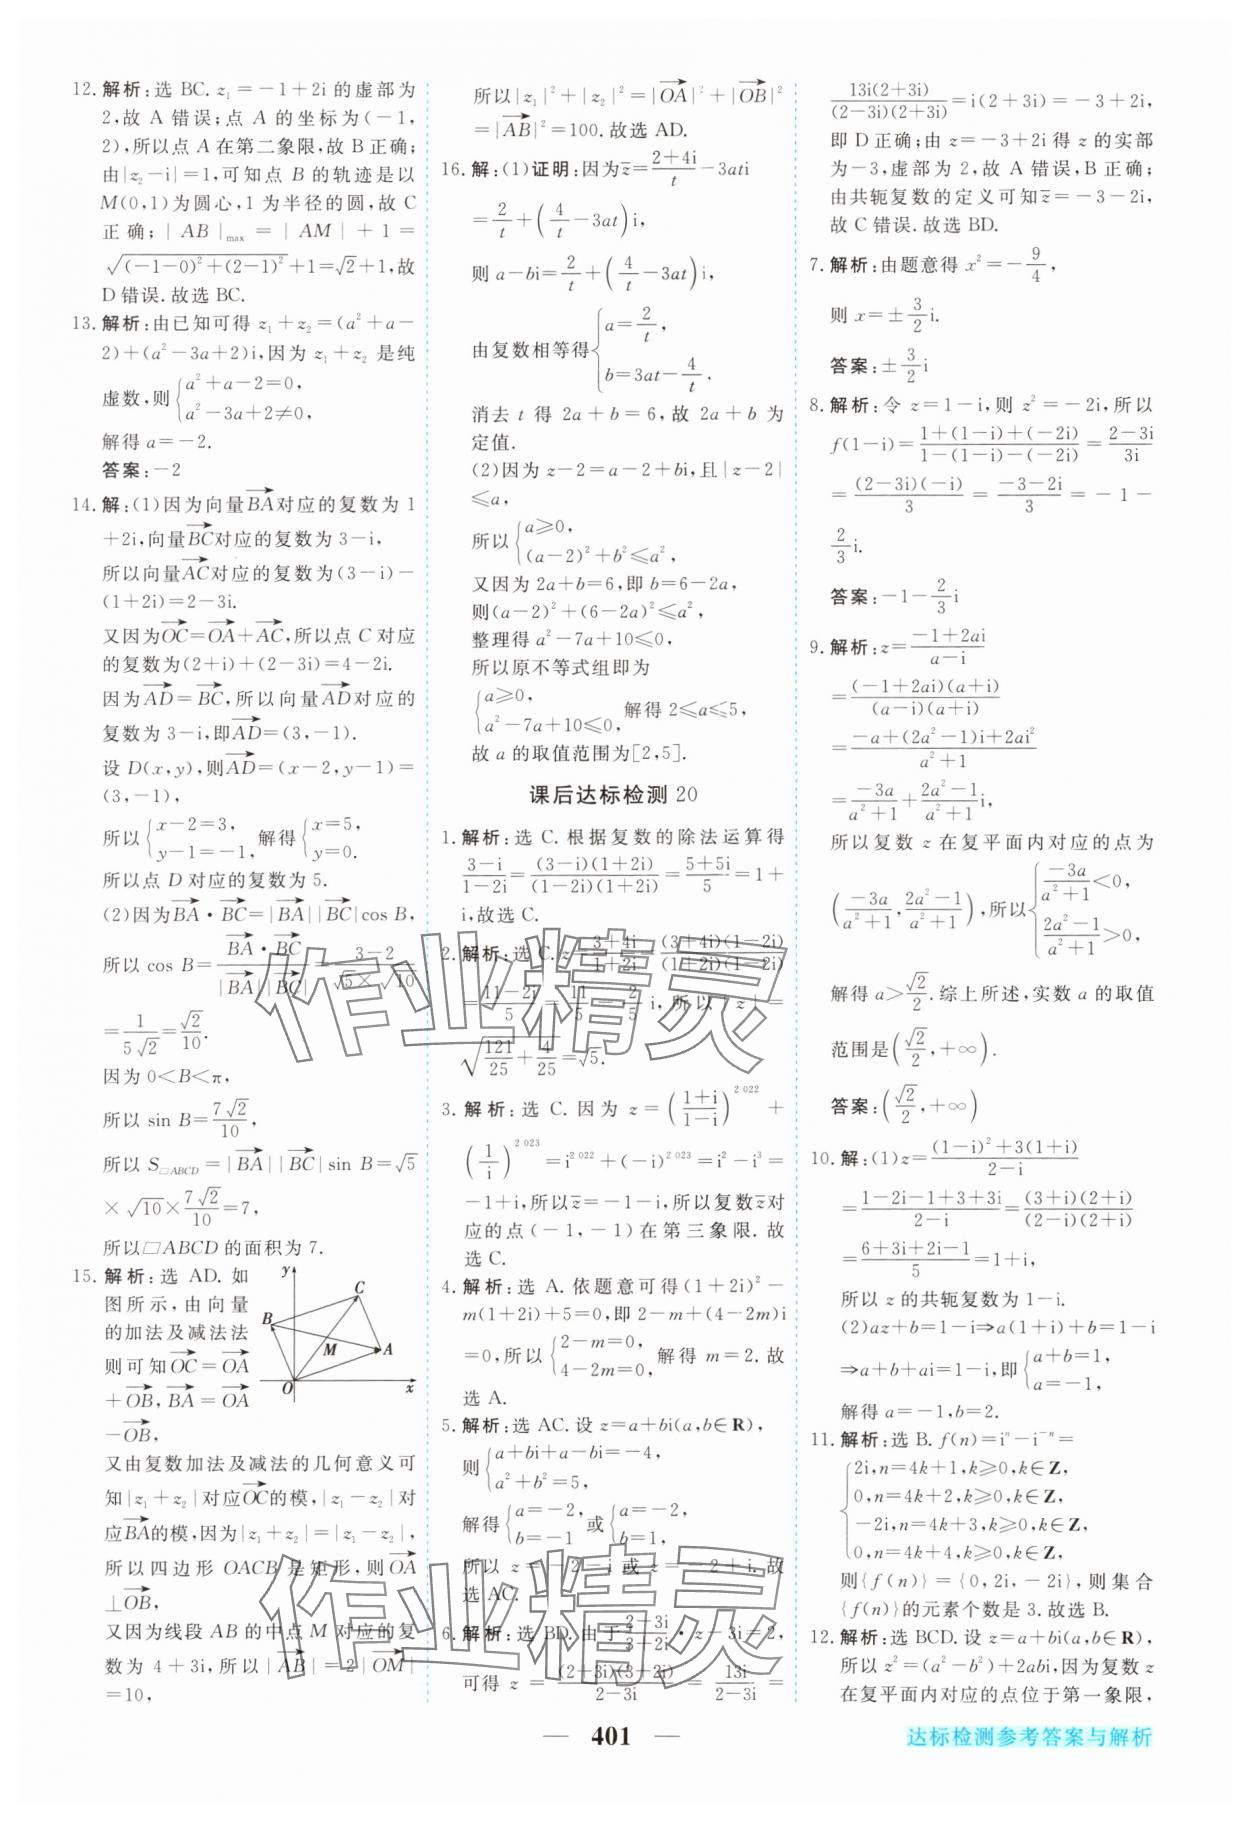 12. 解析:选 BC. z₁=-1+2i 的虚部为
2,故 A 错误;点 A 的坐标为(-1,
2),所以点 A 在第二象限,故 B 正确;
由|z₂-i|=1,可知点 B 的轨迹是以
M(0,1)为圆心,1 为半径的圆,故 C
正确;|AB|max=|AM|+1=
√((-1-0)²+(2-1)²)+1=√2+1,故
D 错误.故选 BC.
13. 解析:由已知可得 z₁+z₂=(a²+a-
2)+(a²-3a+2)i,因为 z₁+z₂ 是纯
虚数,则{a²+a-2=0,
a²-3a+2≠0,
解得 a=-2.
答案:-2
14. 解:(1)因为向量BA→对应的复数为 1
+2i,向量BC→对应的复数为 3-i,
所以向量AC→对应的复数为(3-i)-
(1+2i)=2-3i.
又因为OC→=OA→+AC→,所以点 C 对应
的复数为(2+i)+(2-3i)=4-2i.
因为AD→=BC→,所以向量AD→对应的
复数为 3-i,即AD→=(3,-1).
设 D(x,y),则AD→=(x-2,y-1)=
(3,-1),
所以{x-2=3, y-1=-1, 解得{x=5, y=0.
所以点 D 对应的复数为 5.
(2)因为BA→·BC→=|BA→||BC→|cos B,
所以 cos B=(BA→·BC→)/(|BA→||BC→|)=(3-2)/(√5×√10)
=1/(5√2)=√2/10.
因为 0<B<π,
所以 sin B=7√2/10,
所以 S▱ABCD=|BA→||BC→|sin B=√5
×√10×7√2/10=7,
所以▱ABCD 的面积为 7.
15. 解析:选 AD. 如
图所示,由向量
的加法及减法法
则可知OC→=OA→
+OB→,BA→=OA→
-OB→,
y
C
B
M
A
O
x
又由复数加法及减法的几何意义可
知|z₁+z₂|对应OC→的模,|z₁-z₂|对
应BA→的模,因为|z₁+z₂|=|z₁-z₂|,
所以四边形 OACB 是矩形,则OA→
⊥OB→,
又因为线段 AB 的中点 M 对应的复
数为 4+3i,所以|AB→|=2|OM→|
=10,
所以|z₁|²+|z₂|²=|OA→|²+|OB→|²
=|AB→|²=100.故选 AD.
16. 解:(1)证明:因为z̄=(2+4i)/t-3ati
=2/t+(4/t-3at)i,
则 a-bi=2/t+(4/t-3at)i,
由复数相等得{a=2/t,
b=3at-4/t,
消去 t 得 2a+b=6,故 2a+b 为
定值.
(2)因为 z-2=a-2+bi,且|z-2|
≤a,
所以{a≥0,
(a-2)²+b²≤a²,
又因为 2a+b=6,即 b=6-2a,
则(a-2)²+(6-2a)²≤a²,
整理得 a²-7a+10≤0,
所以原不等式组即为
{a≥0, a²-7a+10≤0, 解得 2≤a≤5,
故 a 的取值范围为[2,5].
课后达标检测 20
1. 解析:选 C. 根据复数的除法运算得
(3-i)/(1-2i)=(3-i)(1+2i)/((1-2i)(1+2i))=(5+5i)/5=1+
i,故选 C.
2. 解析:选 C. z=(3+4i)/(1+2i)=(3+4i)(1-2i)/((1+2i)(1-2i))
=(11-2i)/5=11/5-2/5 i,所以|z|=
√(121/25+4/25)=√5.
3. 解析:选 C. 因为 z=((1+i)/(1-i))^2 022+
(1/i)^2 023=i^2 022+(-i)^2 023=i²-i³=
-1+i,所以z̄=-1-i,所以复数z̄对
应的点(-1,-1)在第三象限.故
选 C.
4. 解析:选 A. 依题意可得(1+2i)²-
m(1+2i)+5=0,即 2-m+(4-2m)i
=0,所以{2-m=0, 4-2m=0, 解得 m=2. 故
选 A.
5. 解析:选 AC. 设 z=a+bi(a,b∈R),
则{a+bi+a-bi=-4,
a²+b²=5,
解得{a=-2, b=-1 或{a=-2, b=1,
所以 z=-2-i 或 z=-2+i. 故
选 AC.
6. 解析:选 BD. 由于(2-3i)/(3+2i)·z-3i=2,
可得 z=(2+3i)(3+2i)/(2-3i)=13i/(2-3i)=
13i(2+3i)/((2-3i)(2+3i))=i(2+3i)=-3+2i,
即 D 正确;由 z=-3+2i 得 z 的实部
为-3,虚部为 2,故 A 错误,B 正确;
由共轭复数的定义可知z̄=-3-2i,
故 C 错误.故选 BD.
7. 解析:由题意得 x²=-9/4,
则 x=±3/2 i.
答案:±3/2 i
8. 解析:令 z=1-i,则 z²=-2i,所以
f(1-i)=(1+(1-i)+(-2i))/(1-(1-i)-(-2i))=(2-3i)/3i
=(2-3i)(-i)/3=(-3-2i)/3=-1-
2/3 i.
答案:-1-2/3 i
9. 解析:z=(-1+2ai)/(a-i)
=(-1+2ai)(a+i)/((a-i)(a+i))
=(-a+(2a²-1)i+2ai²)/(a²+1)
=-3a/(a²+1)+(2a²-1)/(a²+1) i,
所以复数 z 在复平面内对应的点为
(-3a/(a²+1),(2a²-1)/(a²+1)),所以{-3a/(a²+1)<0,
(2a²-1)/(a²+1)>0,
解得 a>√2/2.综上所述,实数 a 的取值
范围是(√2/2,+∞).
答案:(√2/2,+∞)
10. 解:(1)z=((1-i)²+3(1+i))/(2-i)
=(1-2i-1+3+3i)/(2-i)=(3+i)(2+i)/((2-i)(2+i))
=(6+3i+2i-1)/5=1+i,
所以 z 的共轭复数为 1-i.
(2)az+b=1-i⇒a(1+i)+b=1-i
⇒a+b+ai=1-i,即{a+b=1, a=-1,
解得 a=-1,b=2.
11. 解析:选 B. f(n)=iⁿ-i⁻ⁿ=
{2i,n=4k+1,k≥0,k∈Z,
0,n=4k+2,k≥0,k∈Z,
-2i,n=4k+3,k≥0,k∈Z,
0,n=4k+4,k≥0,k∈Z,
则{f(n)}={0,2i,-2i},则集合
{f(n)}的元素个数是 3.故选 B.
12. 解析:选 BCD. 设 z=a+bi(a,b∈R),
所以 z²=(a²-b²)+2abi,因为复数 z
在复平面内对应的点位于第一象限,
作业精灵
作业精灵
— 401 —
达标检测参考答案与解析